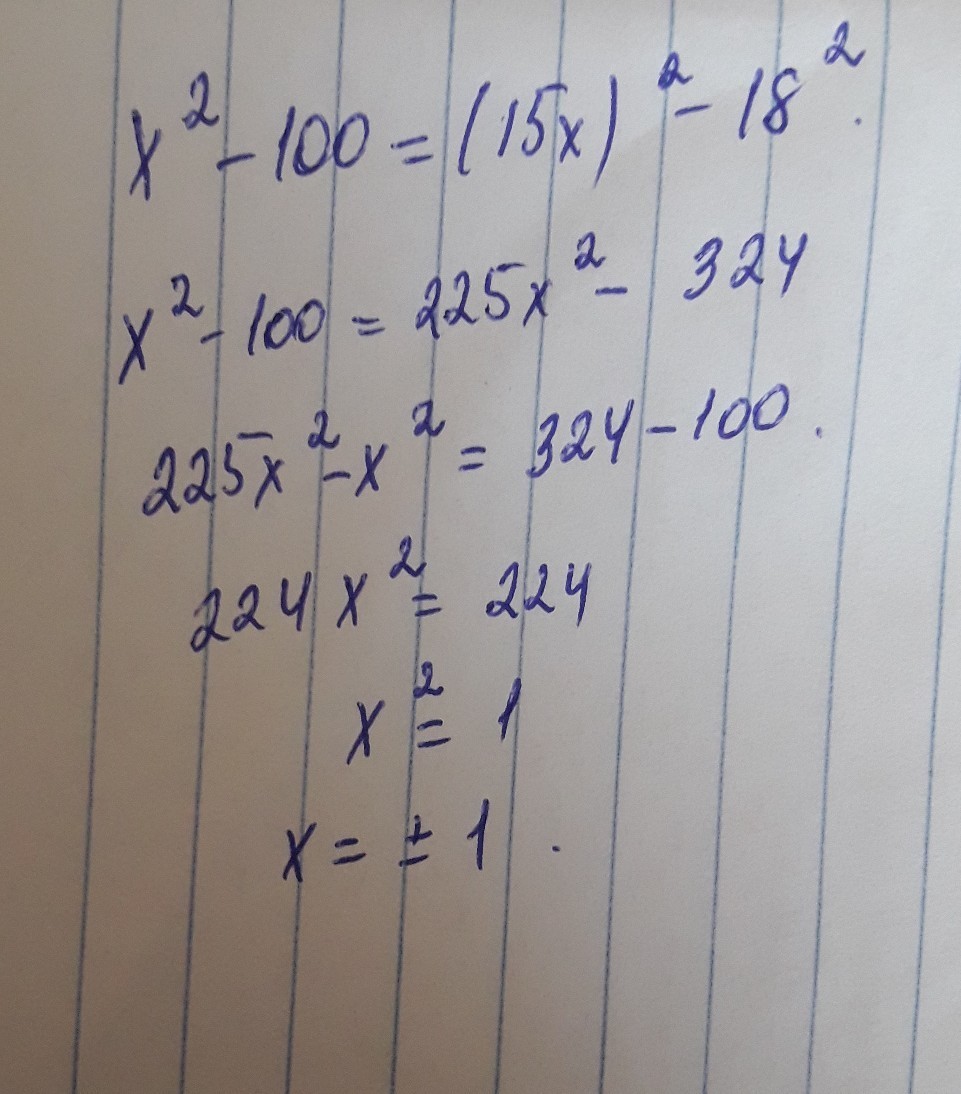 x² - 100 = (15x)² - 18².
x² - 100 = 225x² - 324
225x² - x² = 324 - 100.
224x² = 224
x² = 1
x = ± 1.